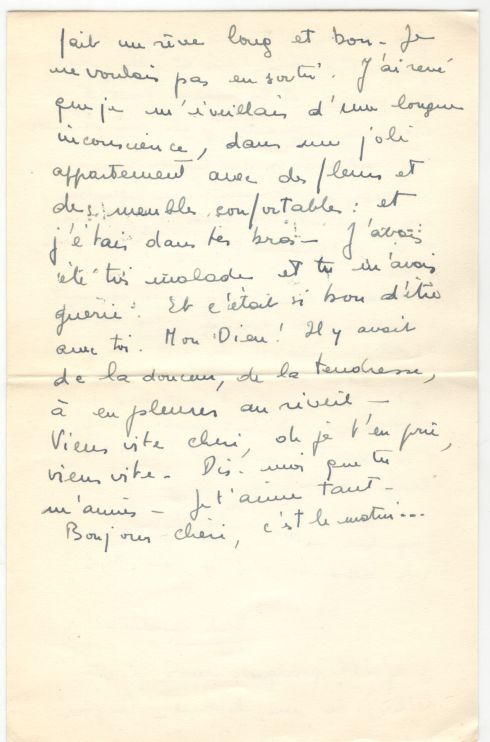 fait un rêve long et bon – Je
ne voulais pas en sortir. J'ai rêvé
que je m'éveillais d'une longue
inconscience, dans un joli
appartement avec des fleurs et
des meubles confortables : et
j'étais dans tes bras – J'avais
été très malade et tu m'avais
guérie. Et c'était si bon d'être
avec toi. Mon Dieu ! Il y avait
de la douceur, de la tendresse,
à en pleurer au réveil –
Viens vite chéri, oh je t'en prie,
viens vite – Dis-moi que tu
m'aimes – Je t'aime tant –
Bonjour chéri, c'est le matin...